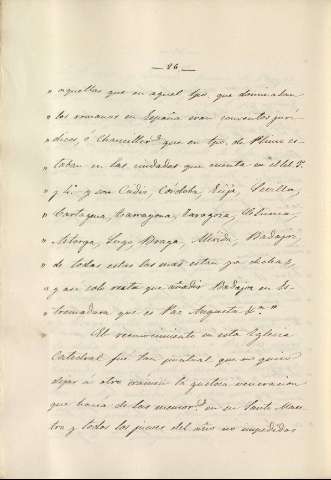 — 26 —
" aquellas que en aquel tpo. que dominaban
" los romanos en España eran conventos juri
" dicos, ó Chanciller.s que en tpo. de Plinio es
" taban en las ciudades que cuenta en el lib. 3.º
" y 4.º y son Cadiz, Cordoba, Ecija, Sevilla,
" Cartagena, Tarragona, Zaragoza,
" Astorga, Lugo, Braga, Mérida, Badajoz,
" de todas estas las mas estan ya dichas,
" y asi solo resta que añadir Badajoz en Es
" tremadura que es Pax Augusta &.ª "
El reconocimiento en esta Iglesia
Catedral fué tan puntual que no quiso
dejar á otro la gustosa veneracion
que hacia de las memor.s en su Santo Maes
tro y todos los jueves del año no impedidos